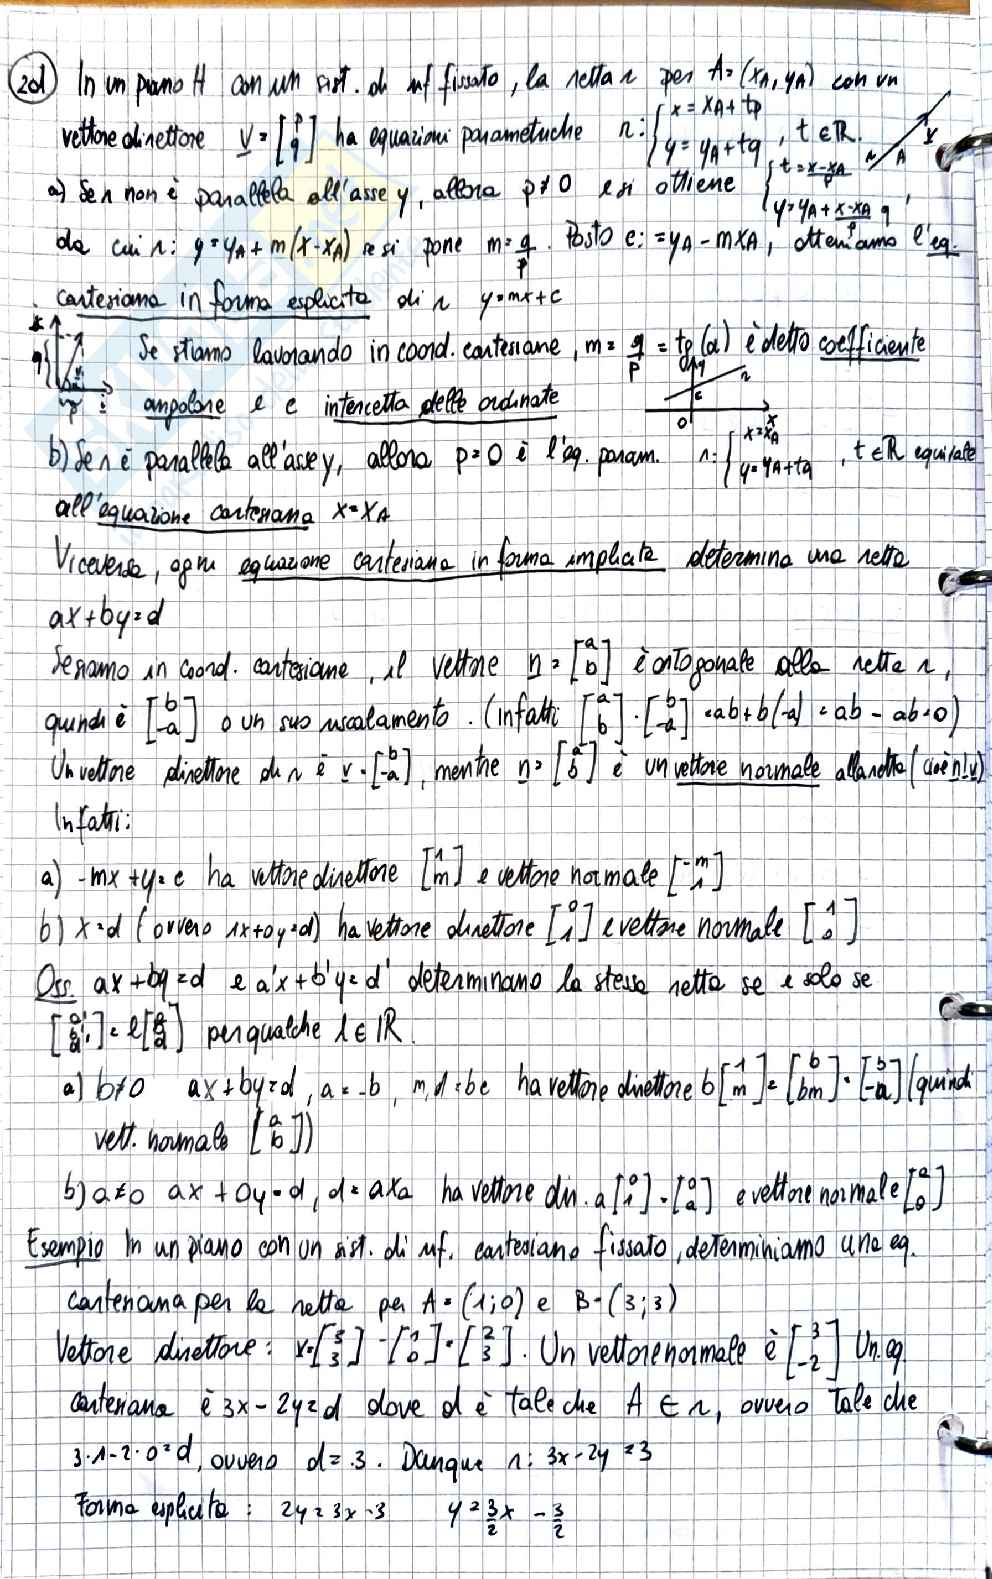 20d In un piano H con un sist. di rif fissato, la retta r per A=(xA, yA) con un
vettore direttore v = [p q] ha equazioni parametriche r: { x = xA + tp y = yA + tq , t ∈ ℝ. r A v
a) Se r non è parallela all'asse y, allora p≠0 e si ottiene { t = x-xA/p y = yA + x-xA/p q ,
da cui r: y = yA + m(x-xA) se si pone m = q/p. Posto c: = yA - mxA, otteniamo l'eq.
cartesiana in forma esplicita di r y=mx+c
Se stiamo lavorando in coord. cartesiane, m = q/p = tg(α) è detto coefficiente
angolare e c intercetta delle ordinate
q p i y r c O x
b) Se r è parallela all'asse y, allora p=0 è l'eq. param. r: { x = xA y = yA + tq , t ∈ ℝ equivale
all'equazione cartesiana x = xA
Viceversa, ogni equazione cartesiana in forma implicita determina una retta
ax + by = d
Se siamo in coord. cartesiane, il vettore n = [a b] è ortogonale alla retta r,
quindi è [b -a] o un suo riscalamento. (infatti [a b] · [b -a] = ab + b(-a) = ab - ab = 0)
Un vettore direttore di r è v = [b -a], mentre n = [a b] è un vettore normale alla retta (cioè n⊥v)
Infatti:
a) -mx + y = c ha vettore direttore [1 m] e vettore normale [-m 1]
b) x = d (ovvero 1x + 0y = d) ha vettore direttore [0 1] e vettore normale [1 0]
Oss. ax + by = d e a'x + b'y = d' determinano la stessa retta se e solo se
[a' b' d'] = l [a b d] per qualche l ∈ ℝ.
a) b≠0 ax + by = d, a = -b m, d = bc ha vettore direttore b[1 m] = [b bm] = [b -a] (quindi
vett. normale [a b])
b) a≠0 ax + 0y = d, d = axa ha vettore dir. a[0 1] = [0 a] e vettore normale [a 0]
Esempio In un piano con un sist. di rif. cartesiano fissato, determiniamo una eq.
cartesiana per la retta per A = (1;0) e B = (3;3)
Vettore direttore: v = [3 3] - [1 0] = [2 3]. Un vettore normale è [3 -2] Un. eq
cartesiana è 3x - 2y = d dove d è tale che A ∈ r, ovvero tale che
3·1 - 2·0 = d, ovvero d = 3. Dunque r: 3x - 2y = 3
Forma esplicita: 2y = 3x - 3 y = 3/2 x - 3/2